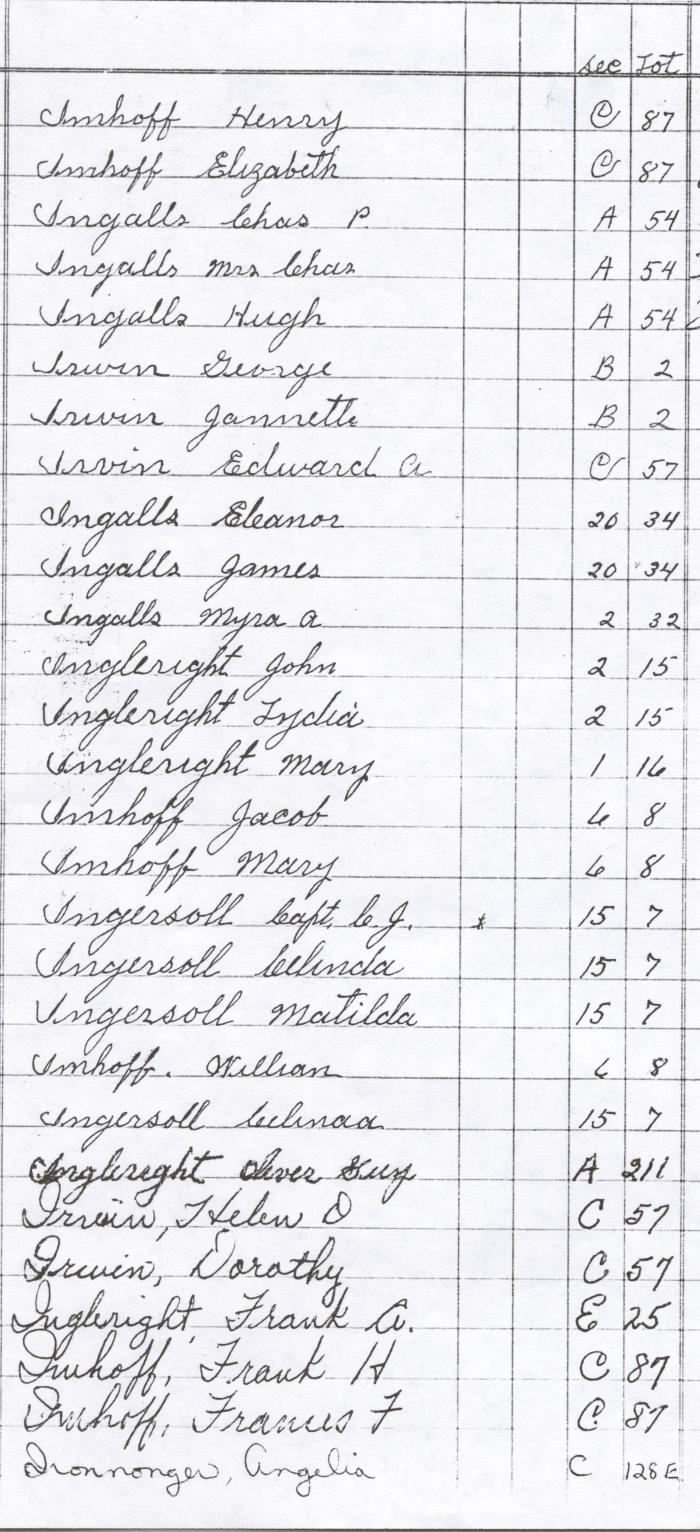 Sec Lot
Imhoff Henry C 87
Imhoff Elizabeth C 87
Ingalls Chas P. A 54
Ingalls Mrs Chas A 54
Ingalls Hugh A 54
Irwin George B 2
Irwin Jannette B 2
Irvin Edward A C 57
Ingalls Eleanor 20 34
Ingalls James 20 34
Ingalls Myra A 2 32
Ingleright John 2 15
Ingleright Lydia 2 15
Ingleright Mary 1 16
Imhoff Jacob 6 8
Imhoff Mary 6 8
Ingersoll Capt. C.J. * 15 7
Ingersoll Celinda 15 7
Ingersoll Matilda 15 7
Imhoff. William 6 8
Ingersoll Celinda 15 7
Ingleright Oliver Guy A 211
Irwin, Helen D C 57
Irwin, Dorothy C 57
Ingleright, Frank A. E 25
Imhoff, Frank H C 87
Imhoff, Frances F C 87
Ironmonger, Angelia C 128 E